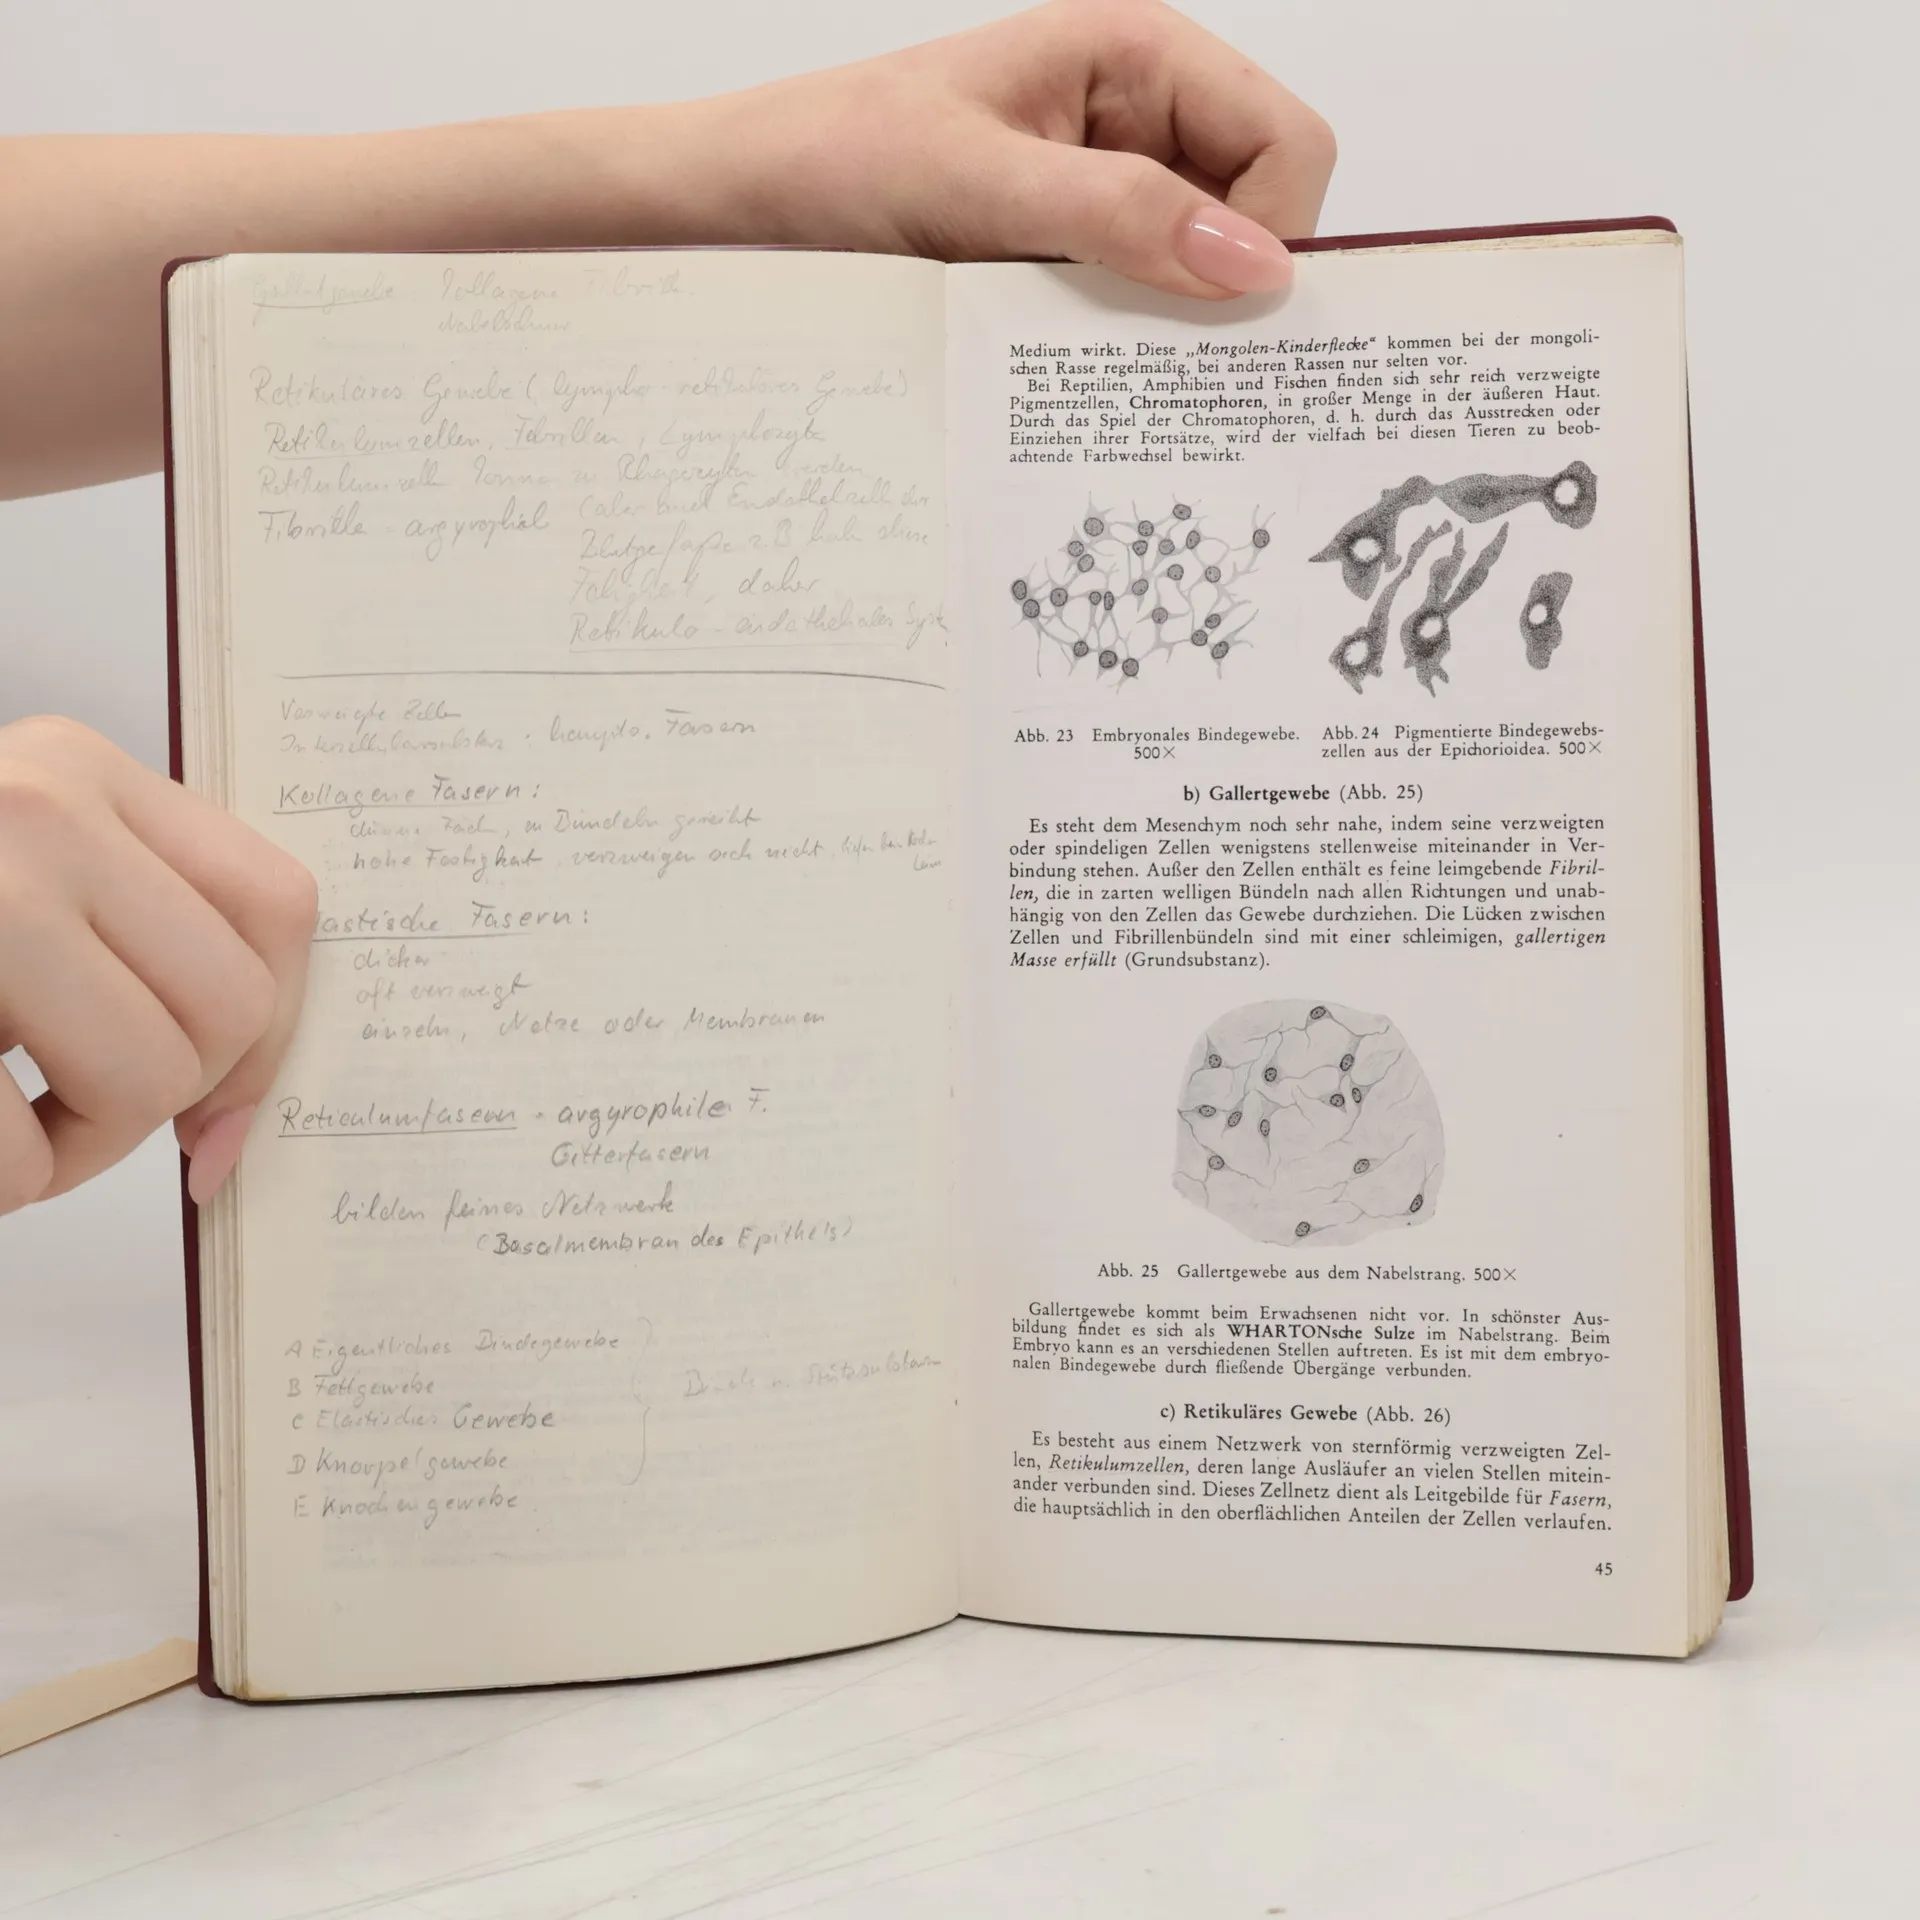 Kollagene Fibrill.
Nabelschnur
Retikuläres Gewebe (lympho-retikuläres Gewebe)
Retikulumzellen, Fibrillen, Lymphozyten
Retikulumzellen können zu Phagozyten werden
Fibrille - argyrophil
(aber auch Endothelzell der
Blutgefäße z.B haben diese
Fähigkeit, daher
Retikulo-endotheliales Syst
Verzweigte Zellen
Interzellularsubstanz : haupts. Fasern
Kollagene Fasern:
dünne, in Bündeln gereiht
hohe Festigkeit verzweigen sich nicht
lastische Fasern:
dicker
oft verzweigt
einzeln, Netze oder Membranen
Reticulumfasern - argyrophile F.
Gitterfasern
bilden feines Netzwerk
(Basalmembran des Epithels)
A Eigentliches Bindegewebe
B Fettgewebe
C Elastisches Gewebe
D Knorpelgewebe
E Knochengewebe
Binde u. Stützsubstanz
Medium wirkt. Diese „Mongolen-Kinderflecke“ kommen bei der mongoli-
schen Rasse regelmäßig, bei anderen Rassen nur selten vor.
Bei Reptilien, Amphibien und Fischen finden sich sehr reich verzweigte
Pigmentzellen, Chromatophoren, in großer Menge in der äußeren Haut.
Durch das Spiel der Chromatophoren, d. h. durch das Ausstrecken oder
Einziehen ihrer Fortsätze, wird der vielfach bei diesen Tieren zu beob-
achtende Farbwechsel bewirkt.
Abb. 23 Embryonales Bindegewebe.
500×
Abb. 24 Pigmentierte Bindegewebs-
zellen aus der Epichorioidea. 500×
b) Gallertgewebe (Abb. 25)
Es steht dem Mesenchym noch sehr nahe, indem seine verzweigten
oder spindeligen Zellen wenigstens stellenweise miteinander in Ver-
bindung stehen. Außer den Zellen enthält es feine leimgebende Fibril-
len, die in zarten welligen Bündeln nach allen Richtungen und unab-
hängig von den Zellen das Gewebe durchziehen. Die Lücken zwischen
Zellen und Fibrillenbündeln sind mit einer schleimigen, gallertigen
Masse erfüllt (Grundsubstanz).
Abb. 25 Gallertgewebe aus dem Nabelstrang. 500×
Gallertgewebe kommt beim Erwachsenen nicht vor. In schönster Aus-
bildung findet es sich als WHARTONsche Sulze im Nabelstrang. Beim
Embryo kann es an verschiedenen Stellen auftreten. Es ist mit dem embryo-
nalen Bindegewebe durch fließende Übergänge verbunden.
c) Retikuläres Gewebe (Abb. 26)
Es besteht aus einem Netzwerk von sternförmig verzweigten Zel-
len, Retikulumzellen, deren lange Ausläufer an vielen Stellen mitein-
ander verbunden sind. Dieses Zellnetz dient als Leitgebilde für Fasern,
die hauptsächlich in den oberflächlichen Anteilen der Zellen verlaufen.
45